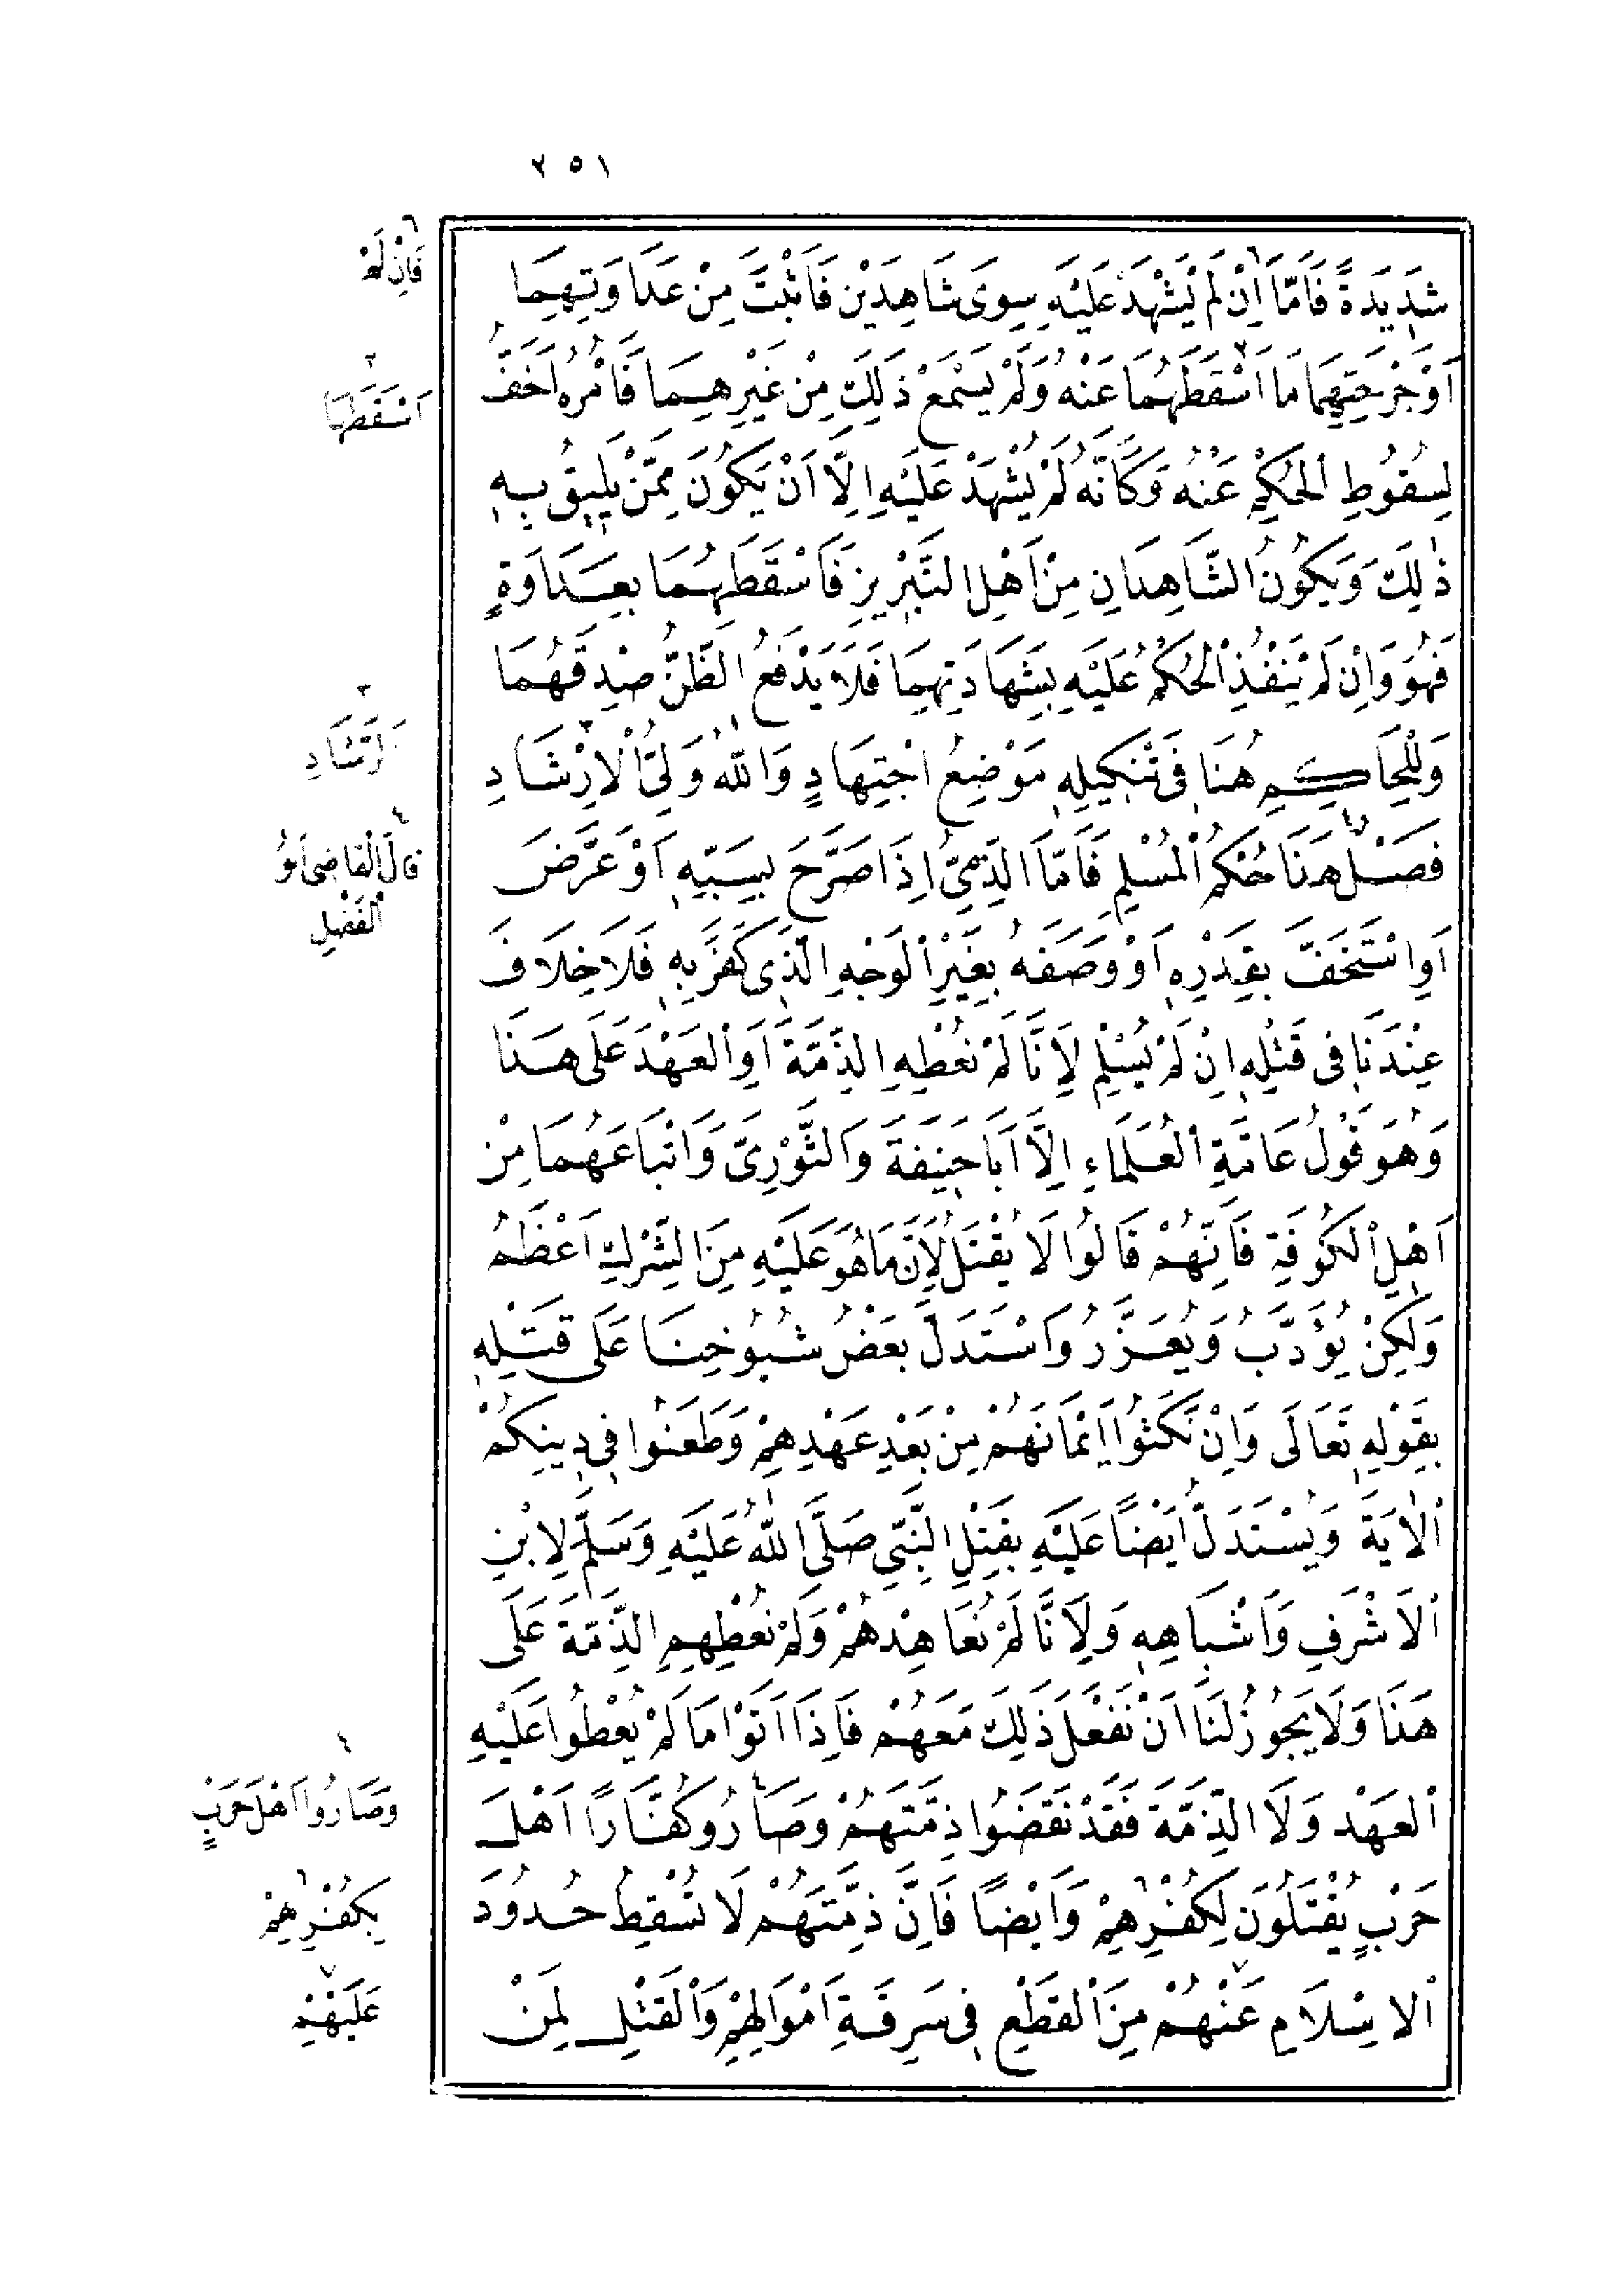 ٢٥١
شَدِيدَةً فَاَمَّا اِنْ لَمْ يَشْهَدْ عَلَيْهِ سِوَى شَاهِدَيْنِ فَاَثْبَتَ مِنْ عَدَاوَتِهِمَا
اَوْ جَرْحَتِهِمَا مَا اَسْقَطَهُمَا عَنْهُ وَلَمْ يَسْمَعْ ذَلِكَ مِنْ غَيْرِهِمَا فَاَمْرُهُ اَخَفُّ
لِسُقُوطِ الْحُكْمِ عَنْهُ وَكَاَنَّهُ لَمْ يُشْهَدْ عَلَيْهِ اِلَّا اَنْ يَكُونَ مِمَّنْ يَلِيقُ بِهِ
ذٰلِكَ وَيَكُونُ الشَّاهِدَانِ مِنْ اَهْلِ التَّبْرِيزِ فَاَسْقَطَهُمَا بِعَدَاوَةٍ
فَهُوَ وَاِنْ لَمْ يَنْفُذِ الْحُكْمُ عَلَيْهِ بِشَهَادَتِهِمَا فَلَا يَدْفَعُ الظَّنُّ صِدْقَهُمَا
وَلِلْحَاكِمِ هُنَا فِى تَنْكِيلِهِ مَوْضِعُ اجْتِهَادٍ وَاللّٰهُ وَلِىُّ الْاِرْشَادِ
فَصْلٌ هَذَا حُكْمُ الْمُسْلِمِ فَاَمَّا الذِّمِّىُّ اِذَا صَرَّحَ بِسَبِّهِ اَوْ عَرَّضَ
اَوِ اسْتَخَفَّ بِقَدْرِهِ اَوْ وَصَفَهُ بِغَيْرِ الْوَجْهِ الَّذِى كَفَرَ بِهِ فَلَا خِلَافَ
عِنْدَنَا فِى قَتْلِهِ اِنْ لَمْ يُسْلِمْ لِاَنَّا لَمْ نُعْطِهِ الذِّمَّةَ اَوِ الْعَهْدَ عَلَى هَذَا
وَهُوَ قَوْلُ عَامَّةِ الْعُلَمَاءِ اِلَّا اَبَا حَنِيفَةَ وَالثَّوْرِىَّ وَاَتْبَاعَهُمَا مِنْ
اَهْلِ الْكُوفَةِ فَاِنَّهُمْ قَالُوا لَا يُقْتَلُ لِاَنَّ مَا هُوَ عَلَيْهِ مِنَ الشِّرْكِ اَعْظَمُ
وَلَكِنْ يُؤَدَّبُ وَيُعَزَّرُ وَاسْتَدَلَّ بَعْضُ شُيُوخِنَا عَلَى قَتْلِهِ
بِقَوْلِهِ تَعَالَى وَاِنْ نَكَثُوا اَيْمَانَهُمْ مِنْ بَعْدِ عَهْدِهِمْ وَطَعَنُوا فِى دِينِكُمْ
الْاٰيَةَ وَيُسْتَدَلُّ اَيْضًا عَلَيْهِ بِقَتْلِ النَّبِىِّ صَلَّى اللّٰهُ عَلَيْهِ وَسَلَّمَ لِابْنِ
الْاَشْرَفِ وَاَشْبَاهِهِ وَلِاَنَّا لَمْ نُعَاهِدْهُمْ وَلَمْ نُعْطِهِمِ الذِّمَّةَ عَلَى
هَذَا وَلَا يَجُوزُ لَنَا اَنْ نَفْعَلَ ذَلِكَ مَعَهُمْ فَاِذَا اَتَوْا مَا لَمْ يُعْطُوا عَلَيْهِ
الْعَهْدَ وَلَا الذِّمَّةَ فَقَدْ نَقَضُوا ذِمَّتَهُمْ وَصَارُوا كُفَّارًا اَهْلَ
حَرْبٍ يُقْتَلُونَ لِكُفْرِهِمْ وَاَيْضًا فَاِنَّ ذِمَّتَهُمْ لَا تُسْقِطُ حُدُودَ
الْاِسْلَامِ عَنْهُمْ مِنَ الْقَطْعِ فِى سَرِقَةِ اَمْوَالِهِمْ وَالْقَتْلِ لِمَنْ
٦
فَاِنْ لَمْ
٢
اَسْقَطَهَا
٣
لِرَشَادِ
٤
قَالَ الْقَاضِى اَبُو
الْفَضْلِ
٤
وَصَارُوا اَهْلَ حَرْبٍ
٦
بِكُفْرِهِمْ
٧
عَلَيْهِمْ